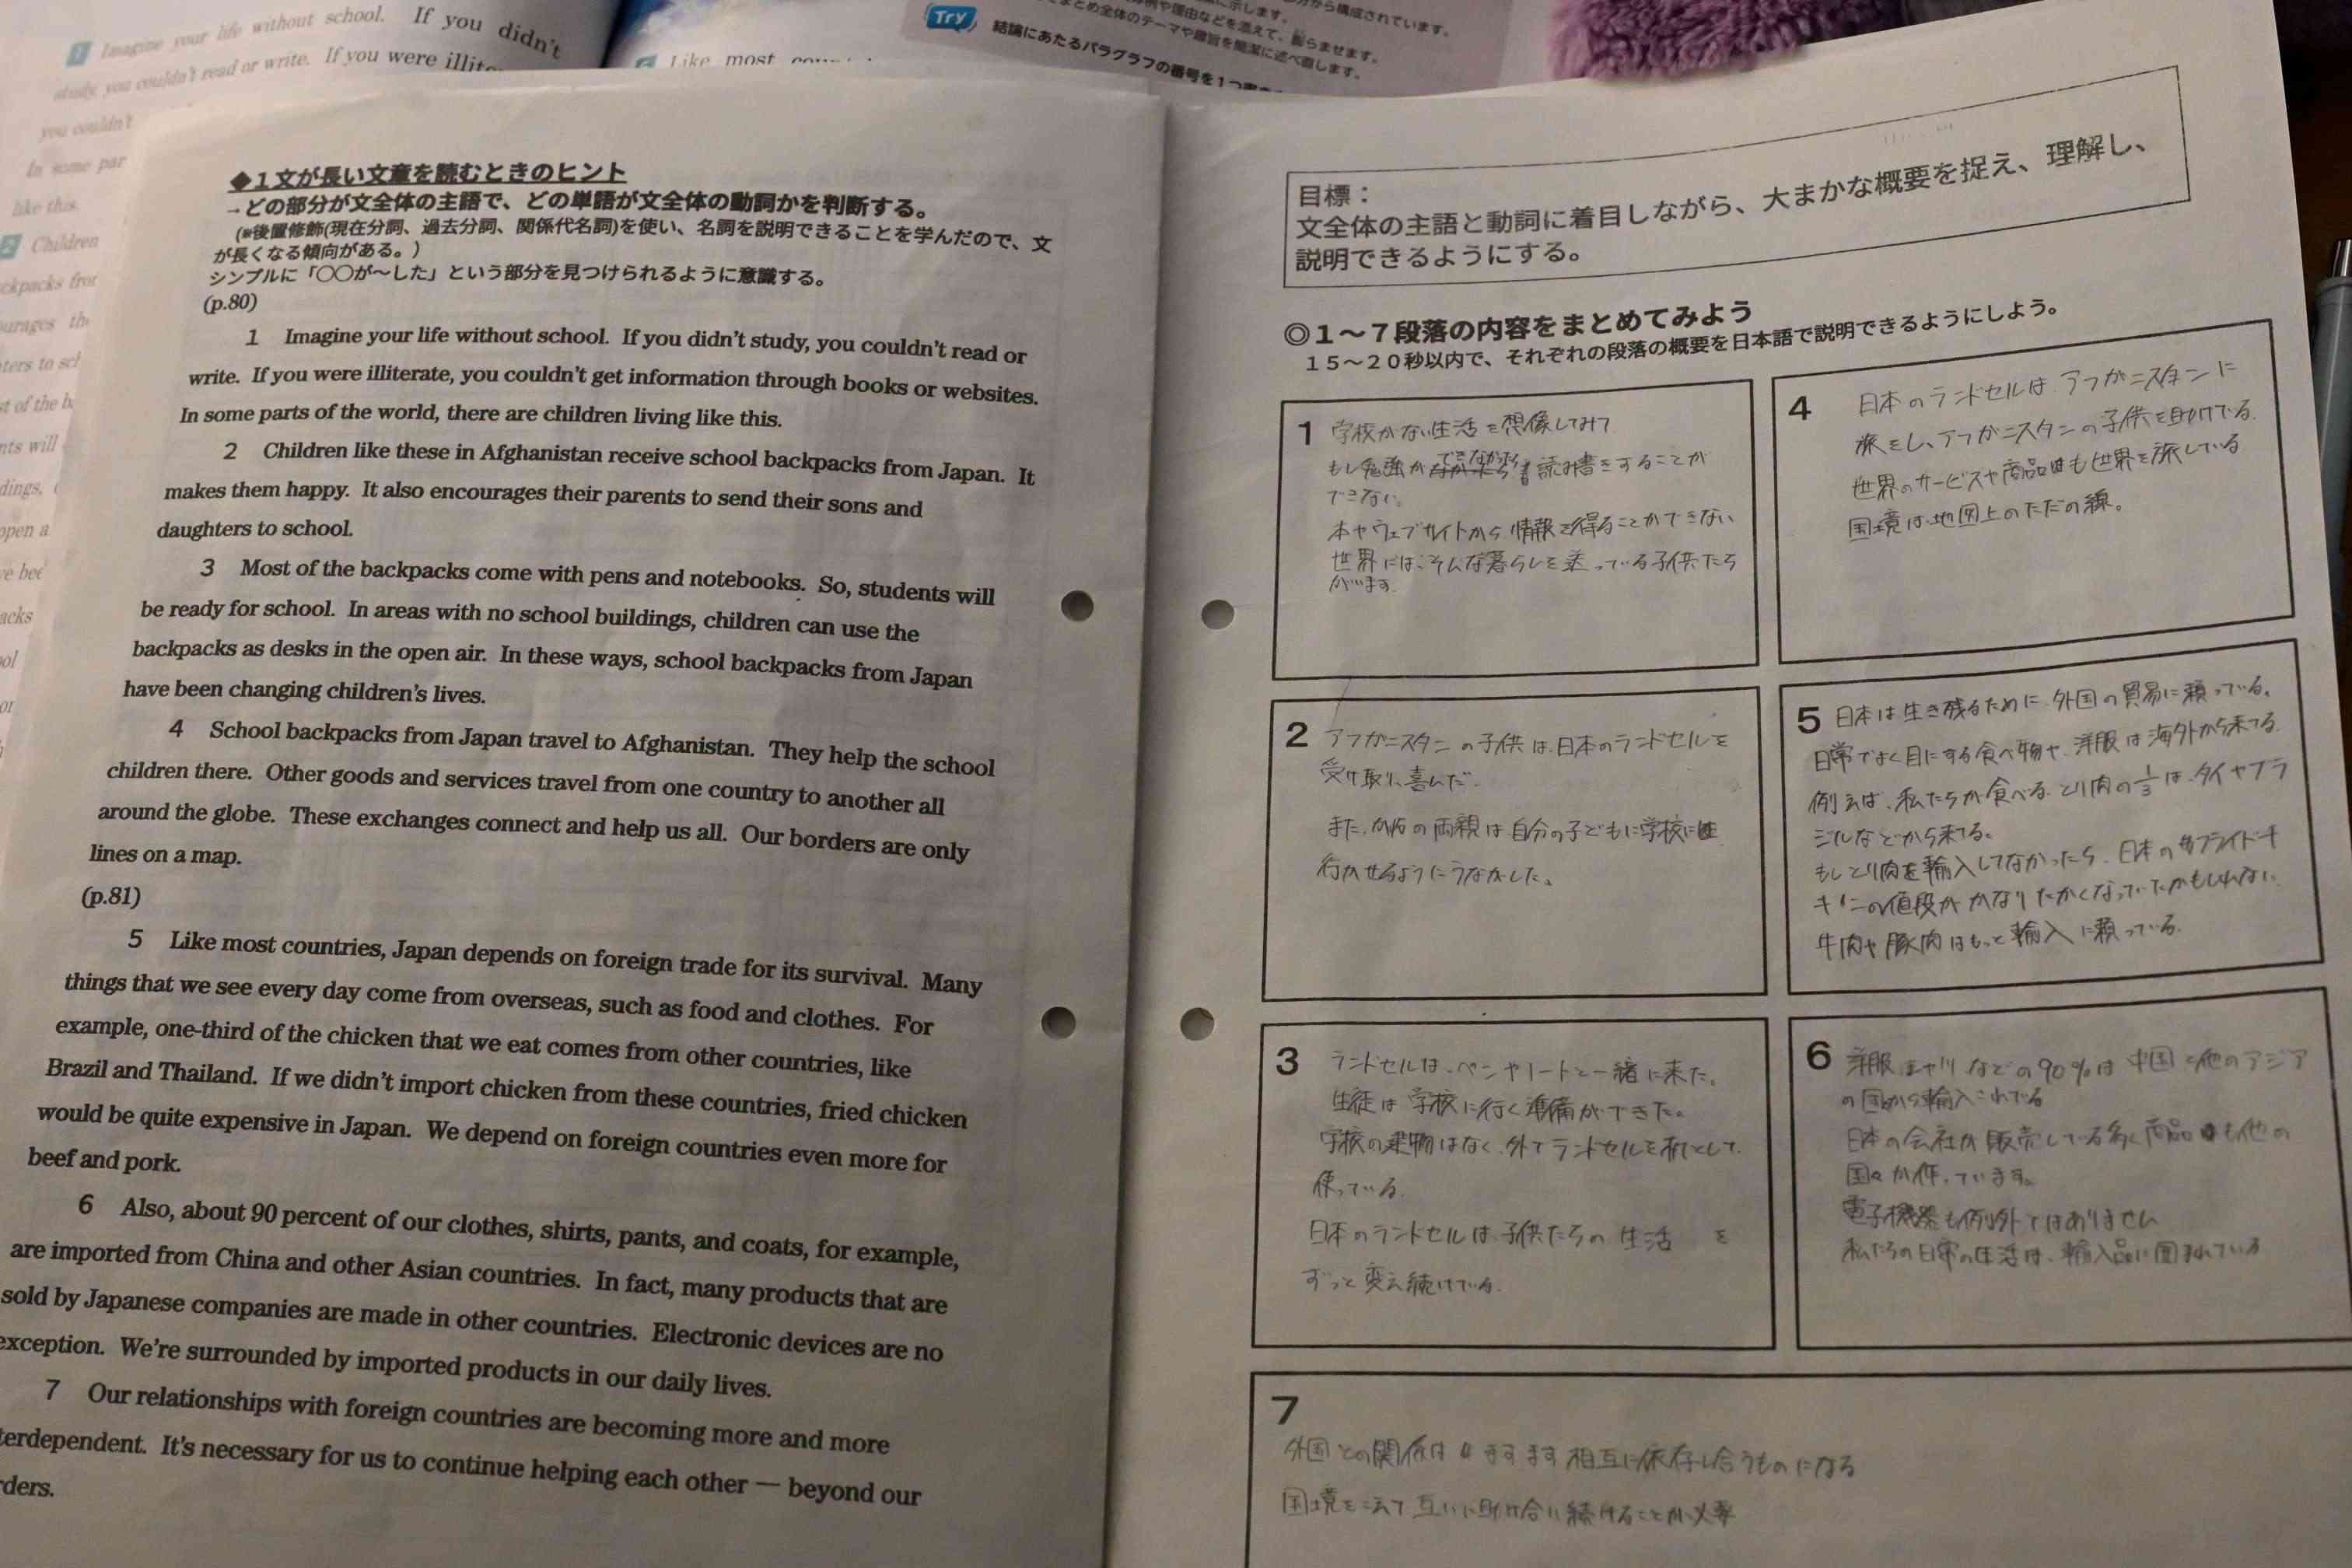 1 Imagine your life without school. If you didn't
study, you couldn't read or write. If you were
you couldn't
In some par
like this.
2 Children
ckpacks fror
urages the
ters to sch
st of the b
nts will
dings,
open a
ve bee
acks
ool
or
6 Like most
Try
結論にあたるパラグラフの番号を1つ
◆1文が長い文章を読むときのヒント
→どの部分が文全体の主語で、どの単語が文全体の動詞かを判断する。
(※後置修飾(現在分詞、過去分詞、関係代名詞)を使い、名詞を説明できることを学んだので、文
が長くなる傾向がある。)
シンプルに「〇〇が〜した」という部分を見つけられるように意識する。
(p.80)
1 Imagine your life without school. If you didn't study, you couldn't read or
write. If you were illiterate, you couldn't get information through books or websites.
In some parts of the world, there are children living like this.
2 Children like these in Afghanistan receive school backpacks from Japan. It
makes them happy. It also encourages their parents to send their sons and
daughters to school.
3 Most of the backpacks come with pens and notebooks. So, students will
be ready for school. In areas with no school buildings, children can use the
backpacks as desks in the open air. In these ways, school backpacks from Japan
have been changing children's lives.
4 School backpacks from Japan travel to Afghanistan. They help the school
children there. Other goods and services travel from one country to another all
around the globe. These exchanges connect and help us all. Our borders are only
lines on a map.
(p.81)
5 Like most countries, Japan depends on foreign trade for its survival. Many
things that we see every day come from overseas, such as food and clothes. For
example, one-third of the chicken that we eat comes from other countries, like
Brazil and Thailand. If we didn't import chicken from these countries, fried chicken
would be quite expensive in Japan. We depend on foreign countries even more for
beef and pork.
6 Also, about 90 percent of our clothes, shirts, pants, and coats, for example,
are imported from China and other Asian countries. In fact, many products that are
sold by Japanese companies are made in other countries. Electronic devices are no
exception. We're surrounded by imported products in our daily lives.
7 Our relationships with foreign countries are becoming more and more
terdependent. It's necessary for us to continue helping each other — beyond our
rders.
目標:
文全体の主語と動詞に着目しながら、大まかな概要を捉え、理解し、
説明できるようにする。
◎1〜7段落の内容をまとめてみよう
15〜20秒以内で、それぞれの段落の概要を日本語で説明できるようにしよう。
1 学校がない生活を想像してみて
もし勉強ができなかったら読み書きをすることが
できない。
本やウェブサイトから情報を得ることができない
世界には、そんな暮らしを送っている子供たち
がいます
2 アフガニスタンの子供は、日本のランドセルを
受け取り、喜んだ。
また、の両親は自分の子どもに学校に
行かせるようにうながした。
3 ランドセルは、ペンやノートと一緒に来た。
生徒は学校に行く準備ができた。
学校の建物はなく、外でランドセルを机として
使っている。
日本のランドセルは子供たちの生活を
ずっと変え続けている。
4 日本のランドセルは、アフガニスタンに
旅をし、アフガニスタンの子供を助けてる。
世界のサービスや商品も世界を旅している
国境は地図上のただの線。
5 日本は生き残るために、外国の貿易に頼っている。
日常でよく目にする食べ物や、洋服は海外から来てる。
例えば、私たちが食べるとり肉の1/3は、タイやブラ
ジルなどから来てる。
もしとり肉を輸入してなかったら、日本のフライドチ
キンの値段がかなりたかくなっていたかもしれない
牛肉や豚肉はもっと輸入に頼っている。
6 洋服などの90%は中国と他のアジア
の国から輸入されてる
日本の会社が販売している多く商品も他の
国々が作っています。
電子機器も例外ではありません
私たちの日常の生活は、輸入品に囲まれている
7
外国との関係はますます相互に依存し合うものになる
国境を越えて互いに助け合い続けることが必要